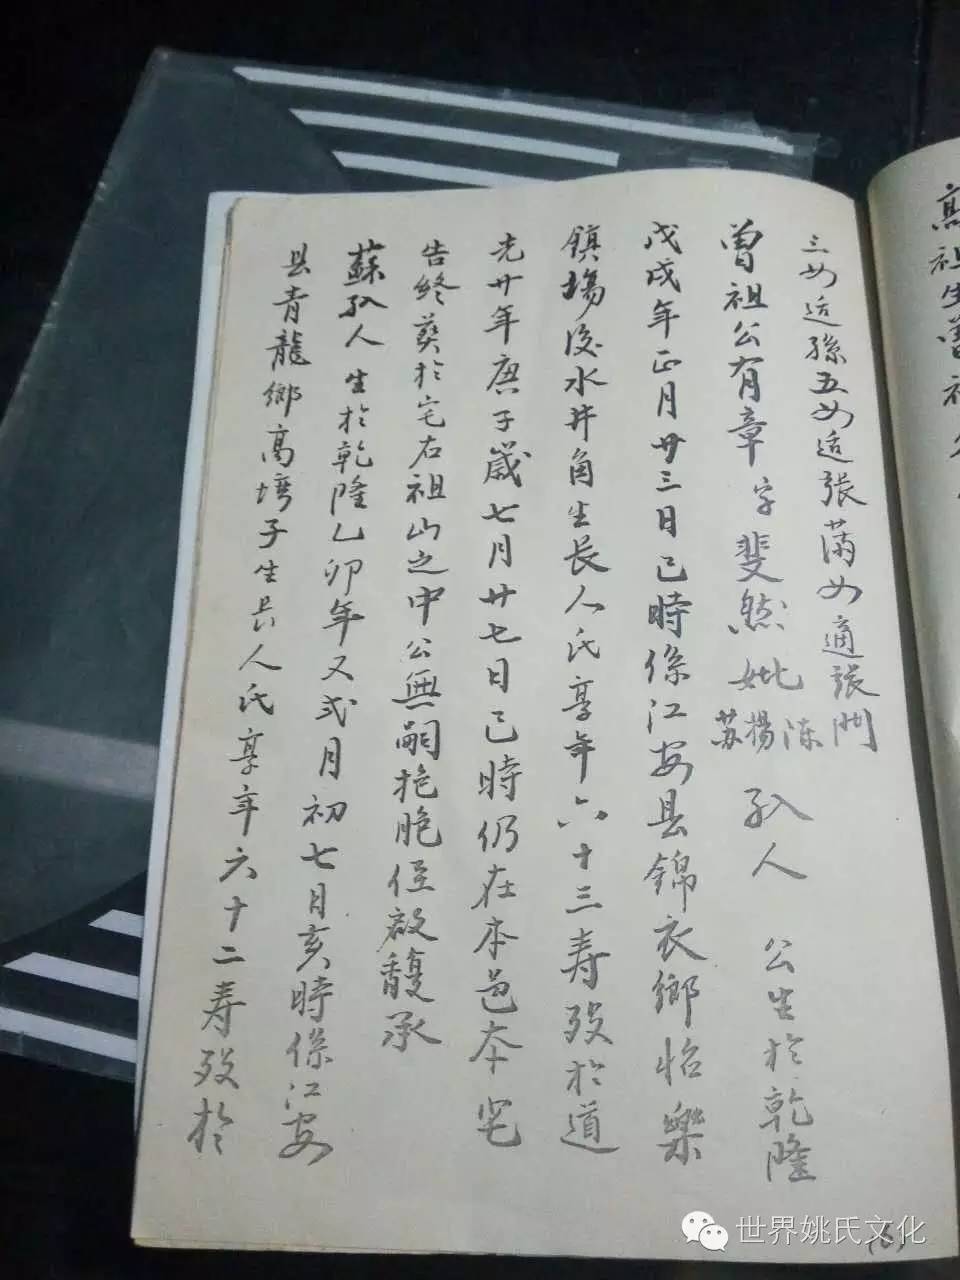 高祖生曾祖公
三女适孫五女适張满女適張門
曾祖公有章字斐然妣陈楊苏孺人公生於乾隆
戊戌年正月廿三日巳時係江安县錦衣鄉怡樂
鎮場後水井角生長人氏享年六十三寿殁於道
光廿年庚子歲七月廿七日巳時仍在本邑本宅
告终葬於宅右祖山之中公無嗣抱胞侄啟馥承
蘇孺人生於乾隆乙卯年又弍月初七日亥時係江安
县青龍鄉高塆子生長人氏享年六十二寿殁於
(6)
世界姚氏文化